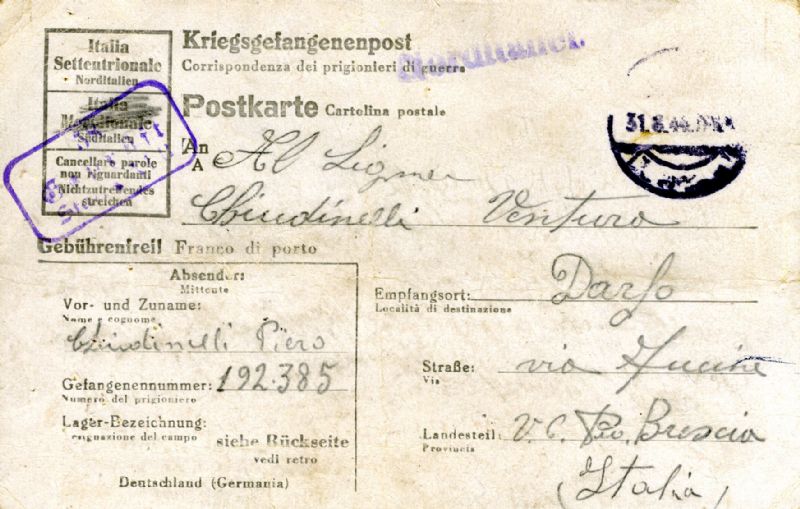 Italia
Settentrionale
Norditalien
Italia
Meridionale
Süditalien
Cancellare parole
non riguardanti
Nichtzutreffendes
streichen
Kriegsgefangenenpost
Norditalien.
Corrispondenza dei prigionieri di guerra
Postkarte Cartolina postale
31.8.44
An
A Al Signor
Chiudinelli Ventura
Gebührenfrei! Franco di porto
Absender:
Mittente
Vor- und Zuname:
Nome e cognome
Chiudinelli Piero
Gefangenennummer: 192.385
Numero del prigioniero
Lager-Bezeichnung:
siehe Rückseite
vedi retro
Deutschland (Germania)
Empfangsort: Darfo
Località di destinazione
Straße: via Fucine
Via
Landesteil: V. C. Pro. Brescia
Provincia
(Italia)